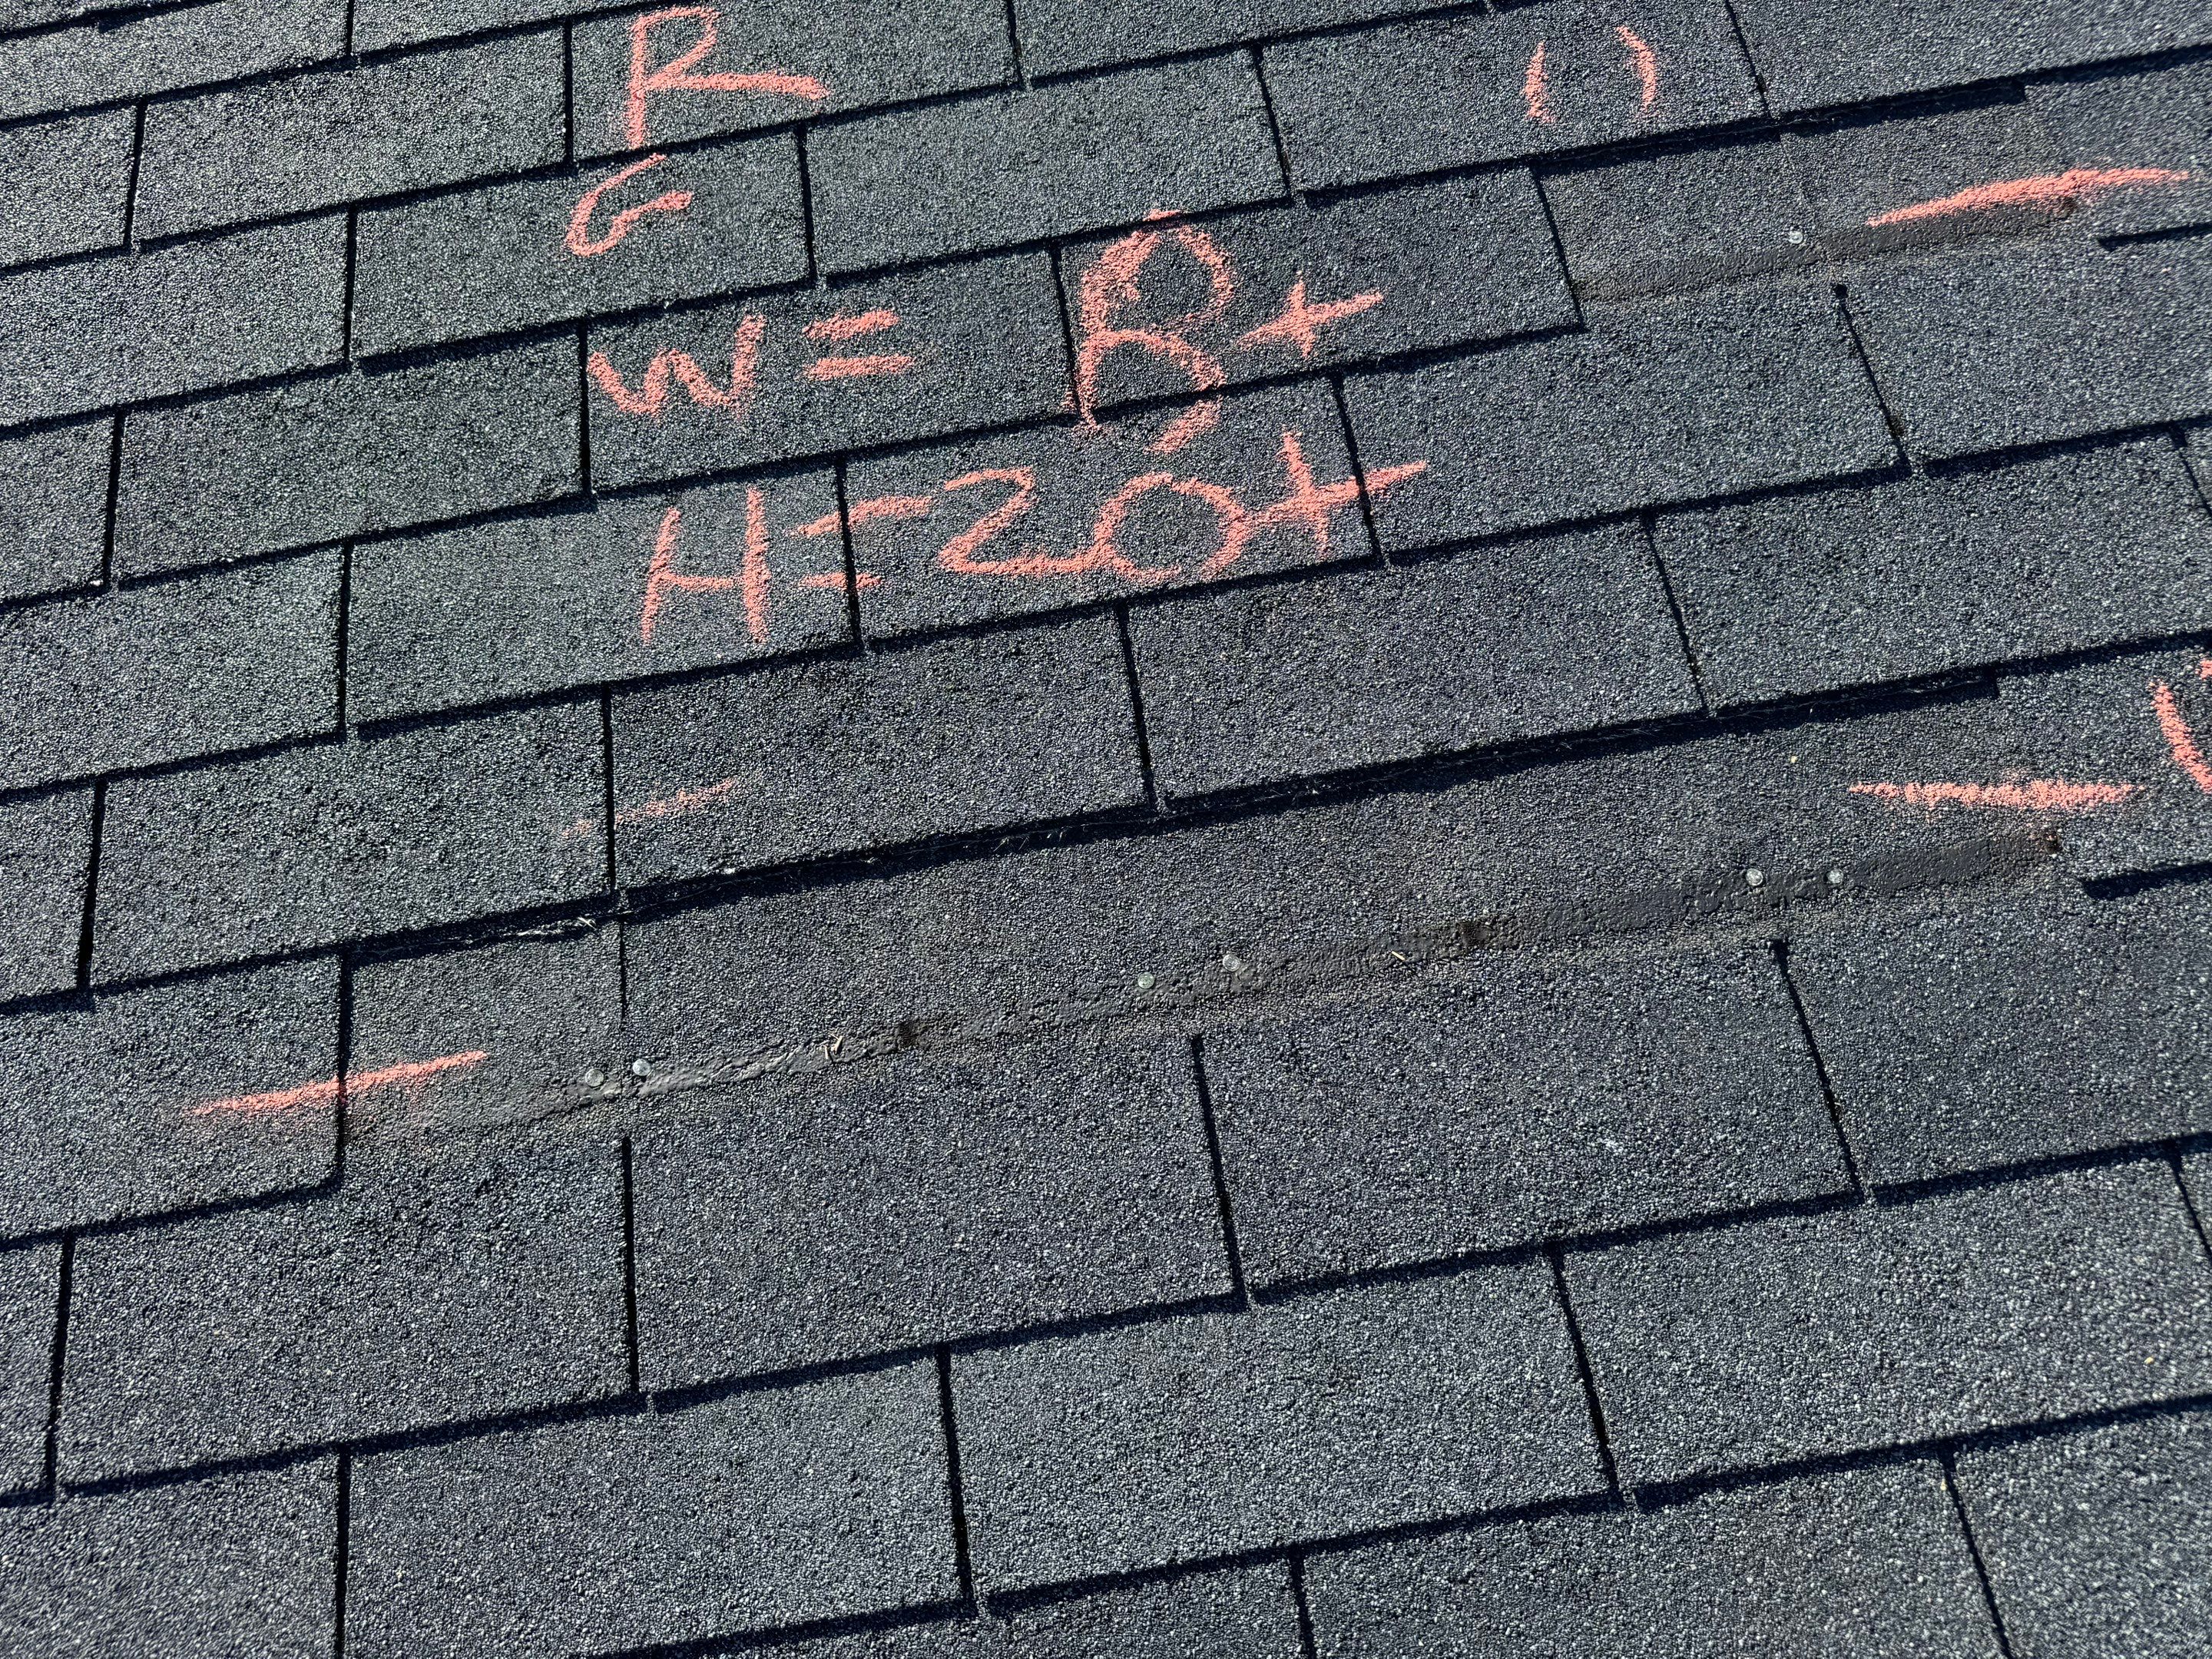 R
G
W = 8+
H = 20+